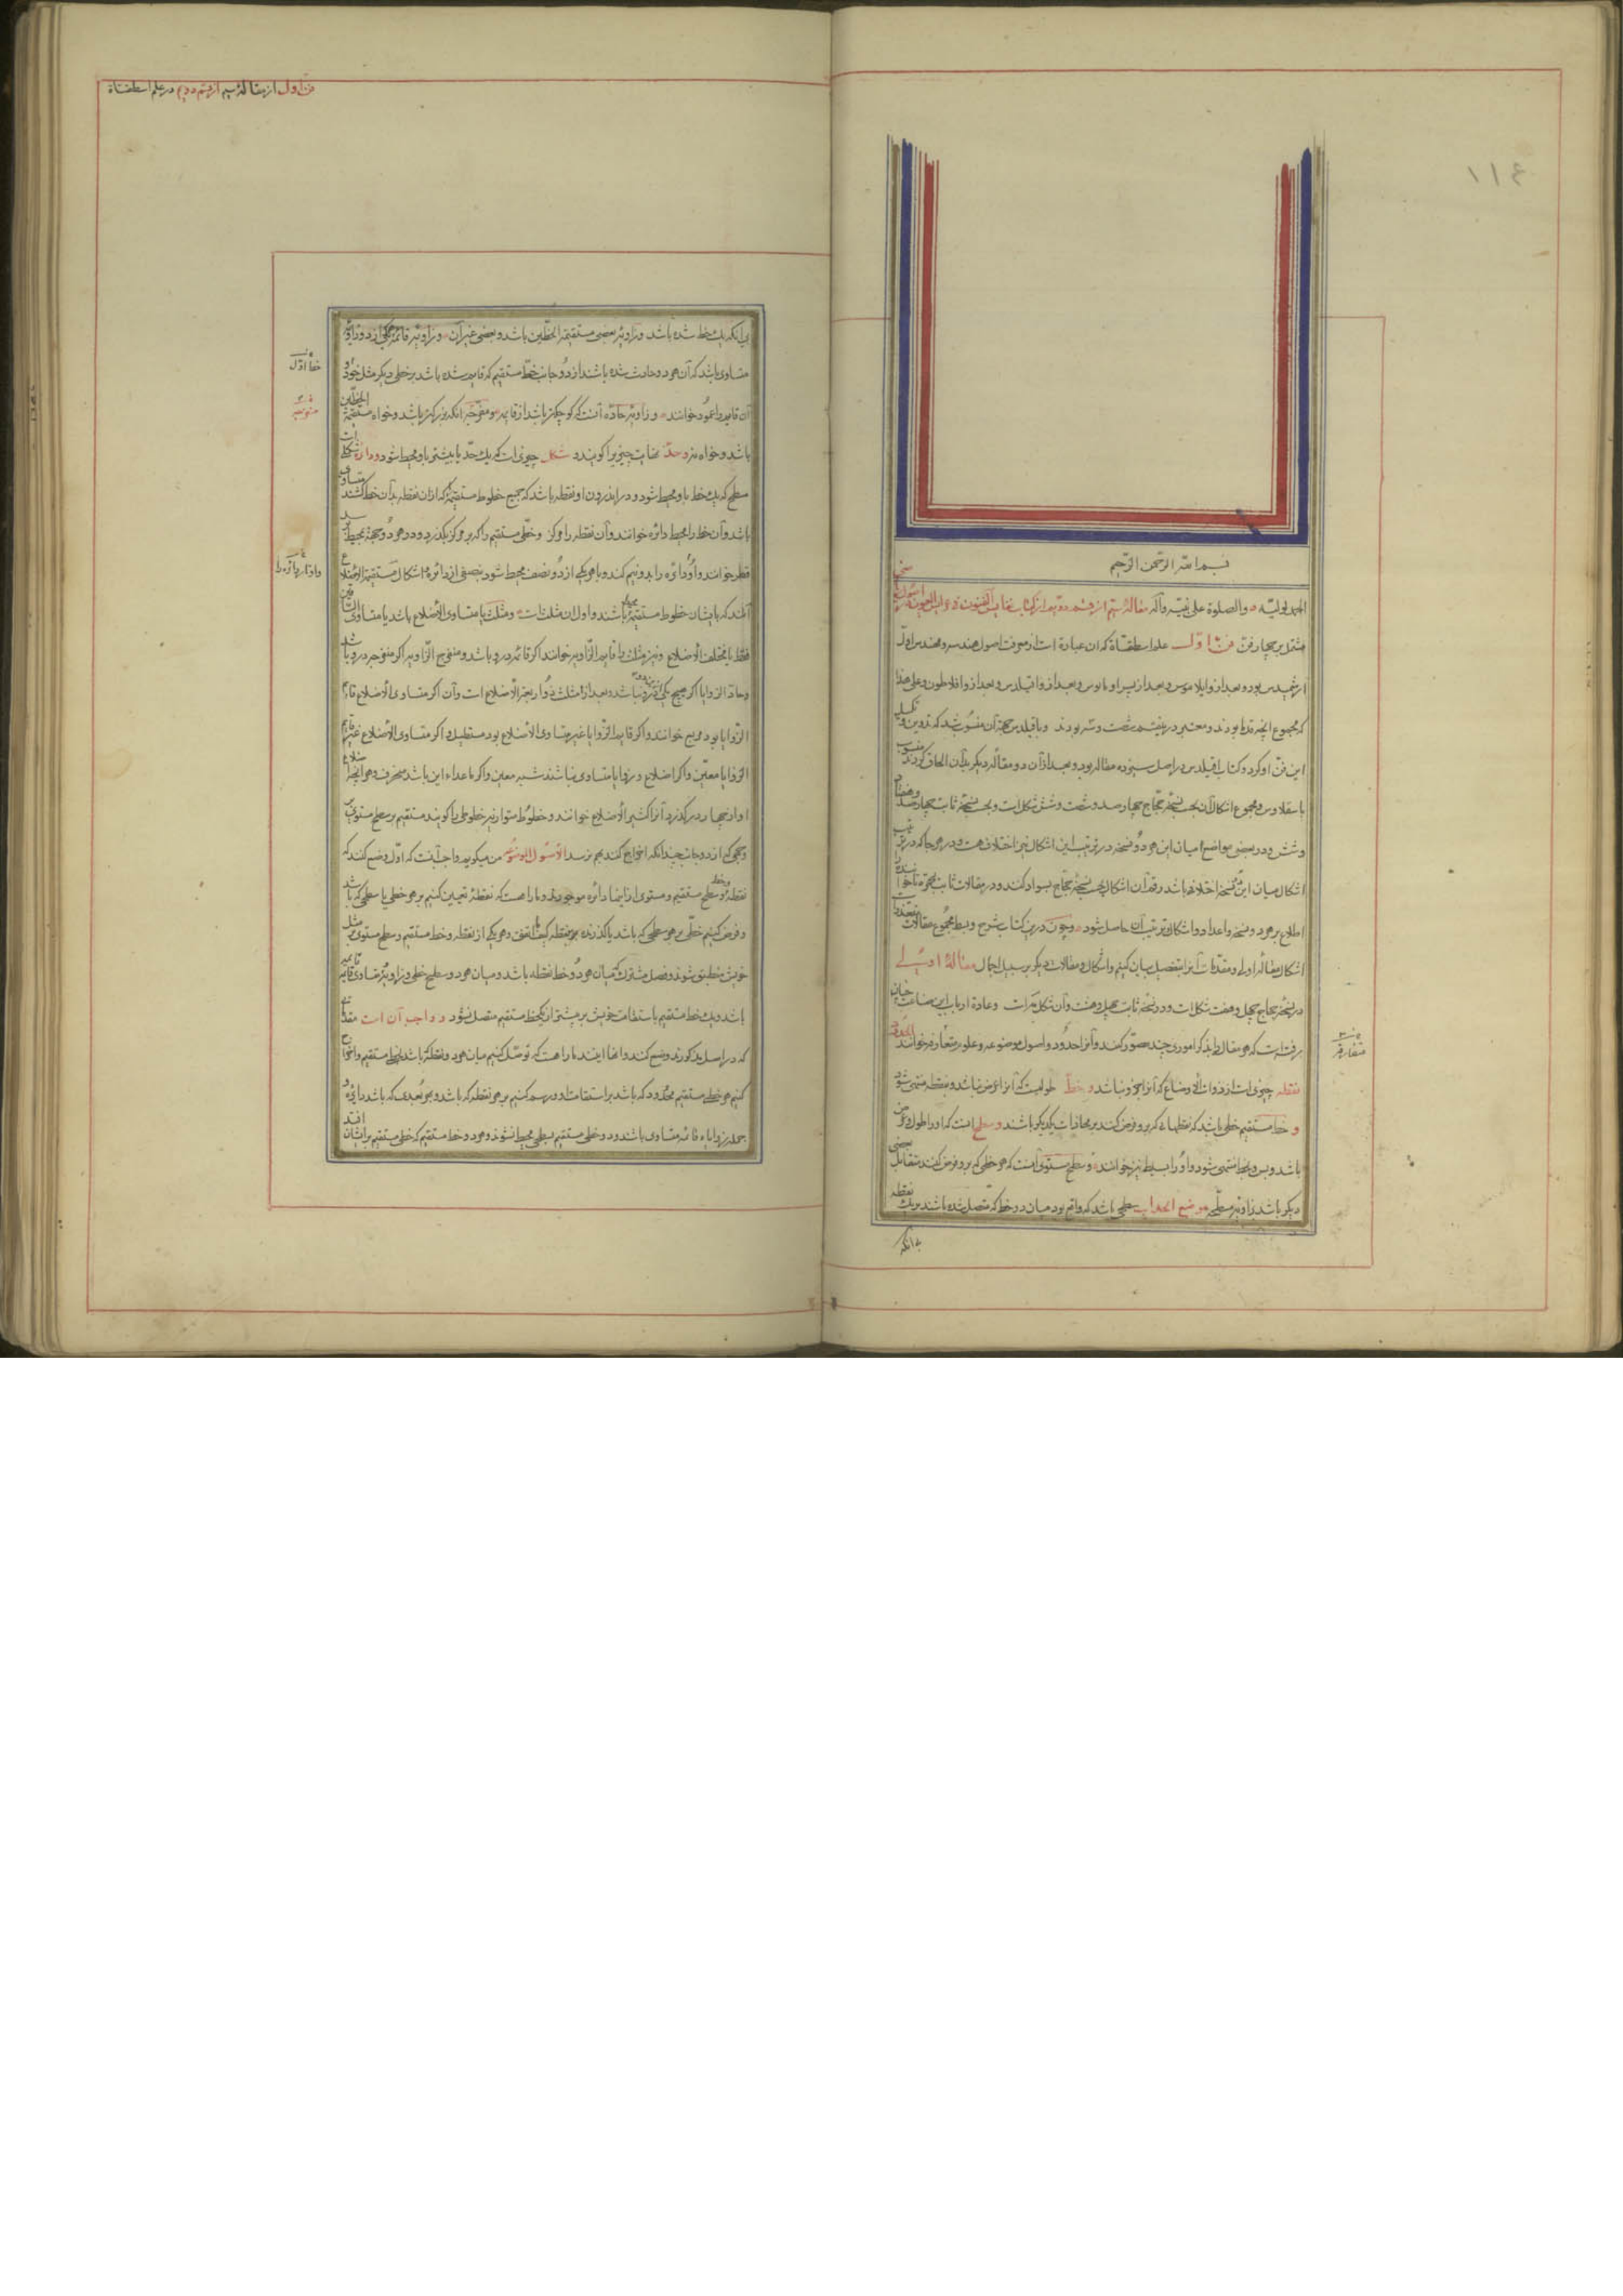 ١١٤
بسم الله الرحمن الرحیم
الحمد لولیّه والصلوة علی نبیّه وآله مقالهٔ سیم از قسم دویم از کتاب نفایس الفنون فی عرایس العیون در اصول
مشتمل بر چهار فن فن اوّل علم اسطقساة که آن عبارة است از معرفت اصول هندسه و مهندس اوّل
ارشمیدس بود و بعد از و ایلاموس و بعد از و اقلیدس و بعد از و افلاطون و علی هذا
که مجموع آنچه قدما بودند و معتبر شصت و سه بودند و باقلیدس جهة آن منسوب شد که تدوین و تکمیل
این فن او کرد و کتاب اقلیدس در اصل سیزده مقاله بود و بعد از آن دو مقاله دیگر بدان الحاق کردند منسوب
باسقلاوس و مجموع اشکال آن بحسب نسخهٔ حجّاج چهارصد و شصت و شش شکل است و بحسب نسخهٔ ثابت چهارصد و هفتاد
و شش و در بعضی مواضع میان این هر دو نسخه در ترتیب این اشکال نیز اختلاف هست و در هر جا که در ترتیب
اشکال میان این دو نسخه اختلاف باشد رقم آن اشکال بحسب نسخهٔ حجّاج بسواد کنند و در مقالات ثابت بحمره تا خواننده را
اطلاع بر هر دو نسخه و اعداد و اشکال و ترتیب آن حاصل شود و چون درین کتاب شرح و بسط مجموع مقالات متعذر است
اشکال مقالهٔ اولی و مقدّمات آنرا بتفصیل بیان کنیم و اشکال و مقالات دیگر بر سبیل اجمال مقالهٔ اولی
در نسخهٔ حجاج چهل و هفت شکل است و در نسخهٔ ثابت چهل و هشت و آن شکل مه است و عادة ارباب این صناعت چنان
رفته است که هر مقاله را بذکر اموری چند مصدّر کنند و آنرا حدود و اصول موضوعه و علوم متعارفه خوانند الحدود
نقطه چیزی است از ذوات الاوضاع که آنرا جزو نباشد و خط طولیست که آنرا عرض نباشد و بنقطه منتهی شود
و خط مستقیم خطی باشد که نقطهائی که برو فرض کنند بر محاذات یکدیگر باشند و سطح آنست که او را طول و عرض
باشد و بس و بخط منتهی شود و او را بسیط نیز خوانند و سطح مستوی آنست که هر خطی که برو فرض کنند مقابل بعضی
دیگر باشد زاویهٔ مسطّحه موضع انحداب سطحی باشد که واقع بود میان دو خط که متصل شده باشند بر یک نقطه
بی آنکه
متعارفه
فن اول از مقالهٔ سیم از قسم دویم در علم اسطقساة
بی آنکه یک خط شده باشد و زاویهٔ بعضی مستقیمة الخطّین باشد و بعضی غیر آن و زاویهٔ قائمه یکی از دو زاویهٔ
متساوی باشد که آن هر دو حادث شده باشند از دو جانب خطّ مستقیم که قایم شده باشد بر خطی دیگر مثل خود و
آن قایم را عمود خوانند و زاویهٔ حادّه آنست که کوچکتر باشد از قایمه و منفرجه آنکه بزرگتر باشد و خواه مستقیمة الخطّین
باشد و خواه نه و حدّ نهایت چیزیرا گویند و شکل چیزی است که یک حدّ یا بیشتر باو محیط شود و دایره شکل
سطح که یک خط باو محیط شود و در اندرون او نقطه باشد که جمیع خطوط مستقیمه که از آن نقطه بدان خط کشند متساوی
باشد و آن خط را محیط دائره خوانند و آن نقطه را مرکز و خطّی مستقیم را که بر مرکز بگذرد و در هر دو جهة بمحیط رسد
قطر خوانند و او دائره را بدو نیم کند و با هر یکی از دو نصف محیط شود بنصفی از دائره و اشکال مستقیمة الاضلاع
آنند که بایشان خطوط مستقیمه محیط باشند و اول ان مثلثات و مثلث یا متساوی الاضلاع باشد یا متساوی الساقین
فقط یا مختلف الاضلاع و نیز مثلث را قایم الزاویه خوانند اگر قائمه درو باشد و منفرج الزّاویه اگر منفرجه درو باشد
و حادّ الزوایا اگر هیچ یکی ازین دو درو نباشد و بعد از مثلث ذو اربعة الاضلاع است و آن اگر متساوی الاضلاع قائم
الزّوایا بود مربع خوانند و اگر قایم الزّوایا غیر متساوی الاضلاع بود مستطیل و اگر متساوی الاضلاع غیر قایم
الزوایا معیّن و اگر اضلاع و زوایا متساوی نباشند شبیه معین و اگر ماعداء این باشد منحرف و هر آنچه اضلاع
او از چهار در گذرد آنرا کثیر الاضلاع خوانند و خطوط متوازیه خطوطی را گویند مستقیم بر سطح مستوی
که از دو جانب چندانکه اخراج کنند بهم نرسد الاصول الموضوعه من میگویم واجب آنست که اوّل وضع کنند که
نقطه و خط و سطح مستقیم و مستوی از اینها دائره موجودند و ما را هست که نقطهٔ تعیین کنیم بر هر خطی یا سطحی که باشد
و فرض کنیم خطّی بر هر سطحی که باشد یا گذرنده بهر نقطه کیف اتفق و هر یکی از نقطه و خط مستقیم و سطح مستوی بر مثل
خویش منطبق شوند و فصل مشترک میان هر دو خط نقطه باشد و میان هر دو سطح خطی و زاویهٔ قایمه متساوی قایمه
باشد و یک خط مستقیم باستقامت خویش بر بیشتر از یک خط مستقیم متصل نشود و واجب آن است
که در اصل مذکورند وضع کنند و انها اینند ما را هست که توصّل کنیم میان هر دو نقطه که باشد بخط مستقیم و اخراج
کنیم هر خط مستقیم محدود که باشد بر استقامت او و رسم کنیم بر هر نقطه که باشد و بهر بُعدی که باشد دایره و
جمله زوایاء قائمه متساوی باشند و دو خطی مستقیم بسطحی محیط نشوند و هر دو خط مستقیم که خطی مستقیم بر ایشان افتد
خط اوّل